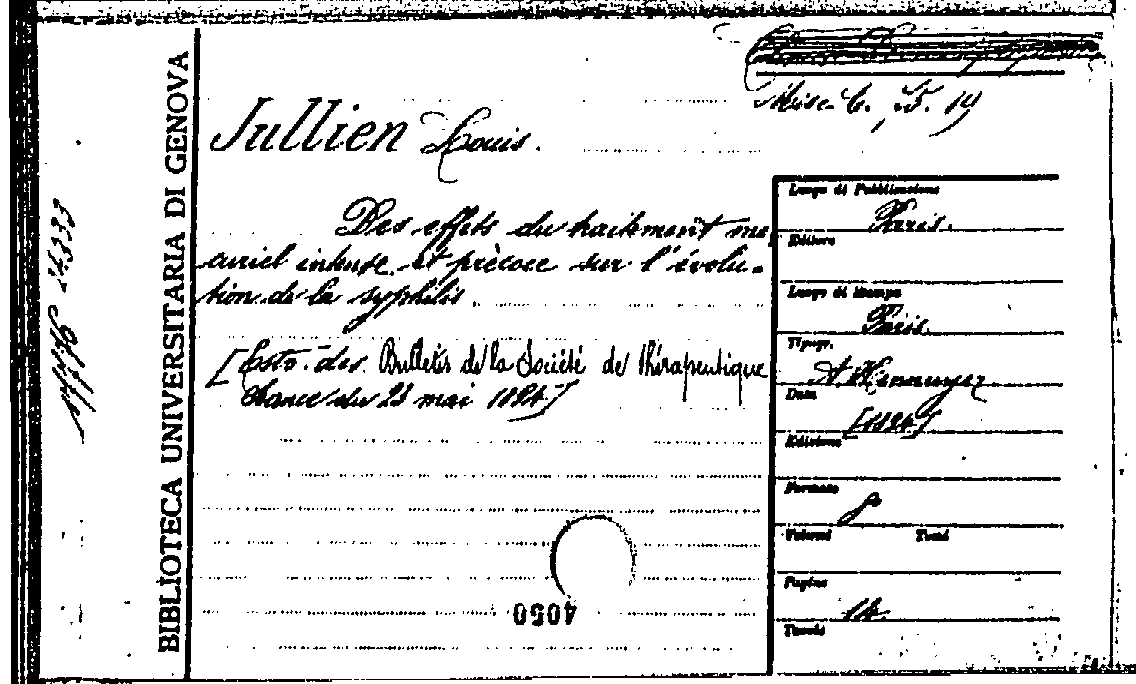 BIBLIOTECA UNIVERSITARIA DI GENOVA
Misc. C. 15. 19
Jullien Louis.
Des effets du traitement mer
curiel intense et précoce sur l'évolu-
tion de la syphilis
[Estr. des Bulletis de la Société de thérapeutique
Séance du 23 mai 1894]
4050
Luogo di Pubblicazione
Paris.
Editore
Luogo di stampa
Paris.
Tipogr.
A. Hennuyer
Data
[1894]
Edizione
Formato
8°
Volumi Tomi
Pagine
14.
Tavole